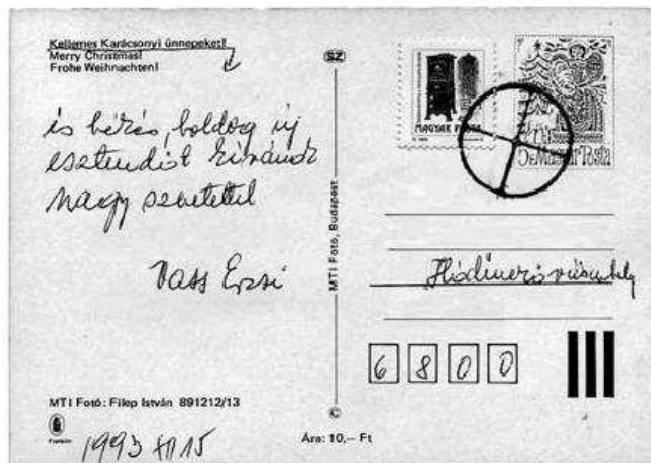 Kellemes Karácsonyi ünnepeket!
Merry Christmas!
Frohe Weihnachten!
és békés, boldog új
esztendőt kívánok
nagy szeretettel
Vass Erzsi
MTI Fotó: Filep István 891212/13
1993 XII 15
SZ
MTI Fotó, Budapest
©
Ára: 10,– Ft
MAGYAR POSTA
Magyar Posta
Hódmezővásárhely
6800